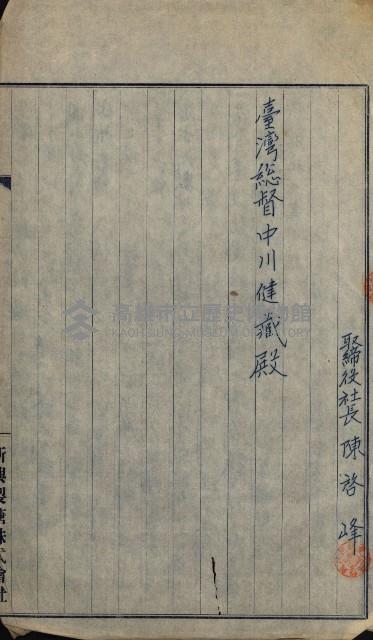 取締役社長 陳啓峰
臺灣総督中川健藏殿
新興製糖株式會社
高雄市立歷史博物館
KAOHSIUNG MUSEUM OF HISTORY